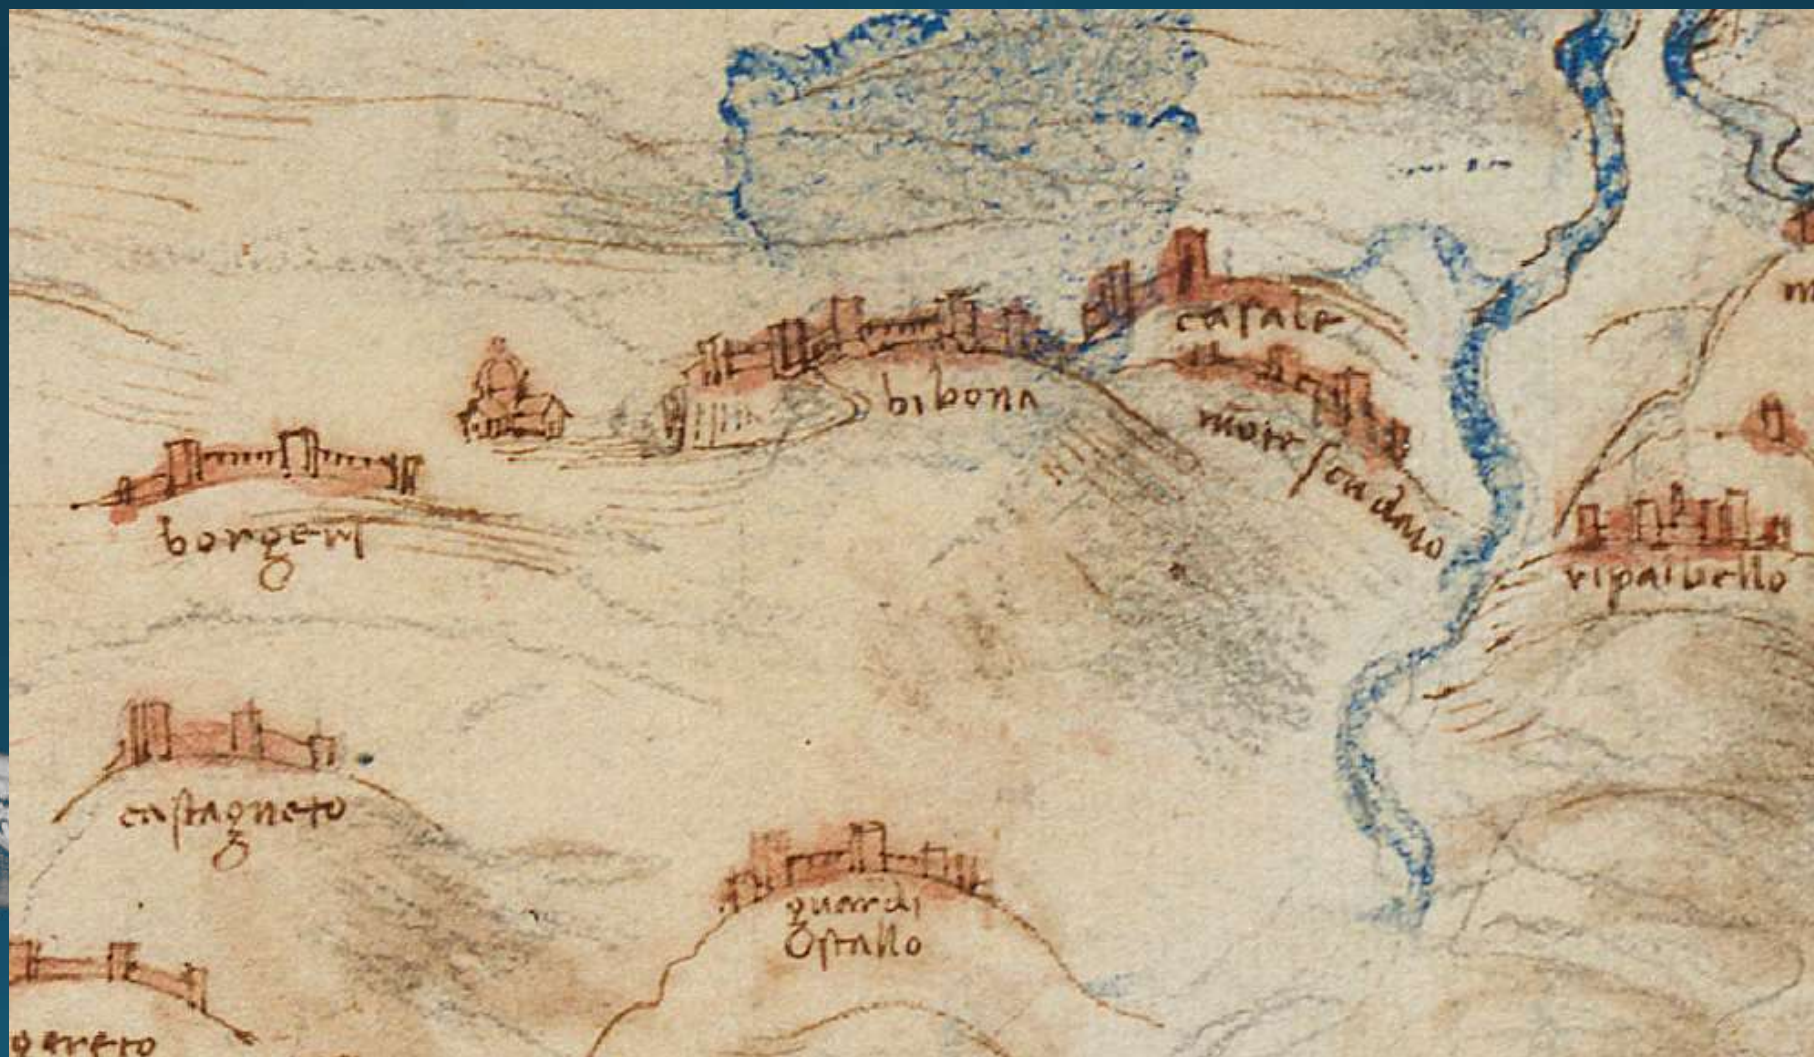 casale
bibona
mōte scudaio
borgeri
ripaibello
castagneto
guardi
stallo